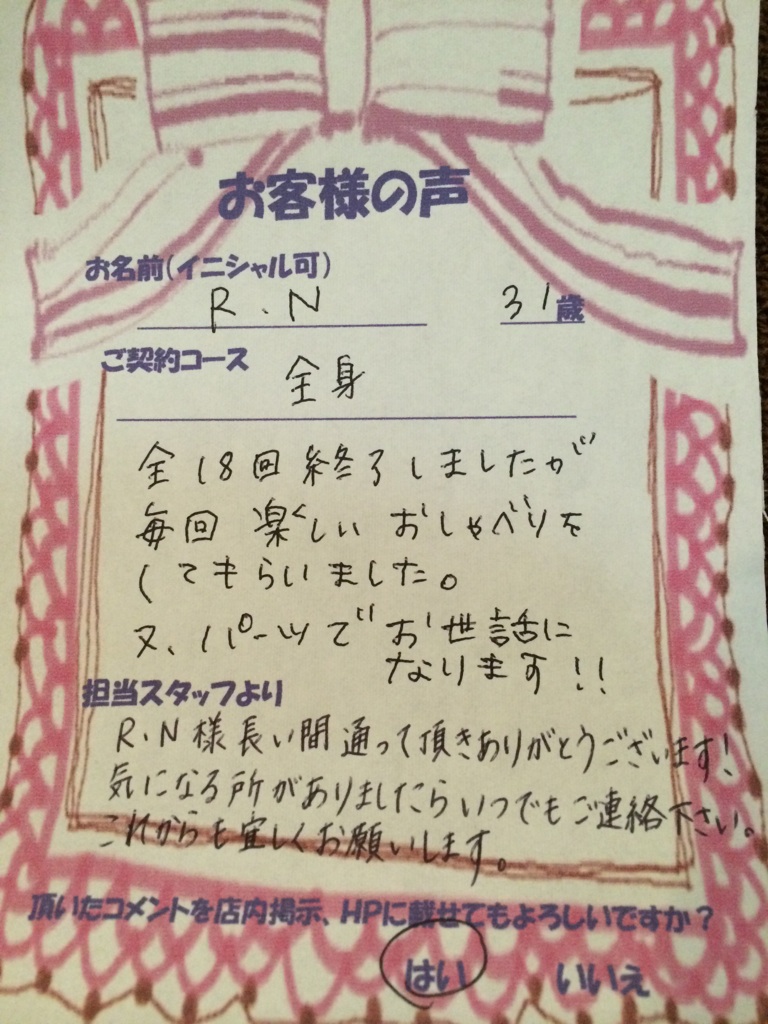 お客様の声
お名前(イニシャル可)
R.N 31歳
ご契約コース
全身
全18回終了しましたが
毎回 楽しい おしゃべりを
してもらいました。
又、パーツで お世話に
なります!!
担当スタッフより
R.N様長い間通って頂きありがとうございます!
気になる所がありましたらいつでもご連絡下さい。
これからも宜しくお願いします。
頂いたコメントを店内掲示、HPに載せてもよろしいですか?
はい いいえ